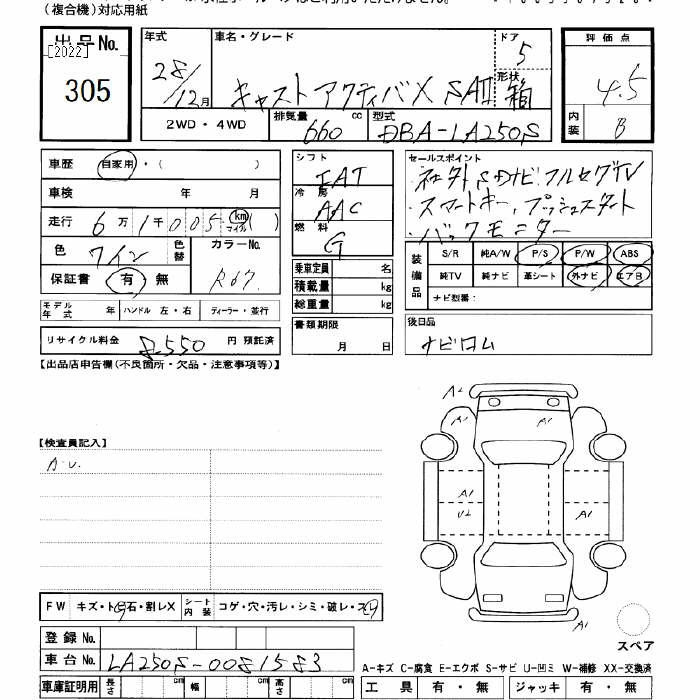 (複合機)対応用紙
出品No. 年式 車名・グレード ドア 5 評価点
[2022]
305 28/12月 キャスト アクティバX SAⅡ 形状 箱 4.5
2WD・4WD 排気量 660 cc 型式 DBA-LA250S 内装 B
車歴 自家用・( )
車検 年 月
走行 6万1千005 km マイル( )
色 ワイン 色替 カラーNo. R67
保証書 有 無
モデル年式 年 ハンドル 左・右 ディーラー・並行
リサイクル料金 8,550 円 預託済
シフト FAT
冷房 AAC
燃料 G
乗車定員 名
積載量 kg
総重量 kg
書類期限
月 日
セールスポイント
社外SDナビ フルセグTV
・スマートキー、プッシュスタート
・バックモニター
装備品 S/R 純A/W P/S P/W ABS
純TV 純ナビ 革シート 外ナビ エアB
ナビ型番:
後日品
ナビロム
【出品店申告欄(不良箇所・欠品・注意事項等)】
【検査員記入】
A.U.
A2
A1 A1
A1
U2 A1
A1
スペア
FW キズ・トビ石・割レX シート内装 コゲ・穴・汚レ・シミ・破レ・スレ
登録No.
車台No. LA250S-0081583
A-キズ C-腐食 E-エクボ S-サビ U-凹ミ W-補修 XX-交換済
車庫証明用 長さ cm 幅 cm 高さ cm 工具 有・無 ジャッキ 有・無